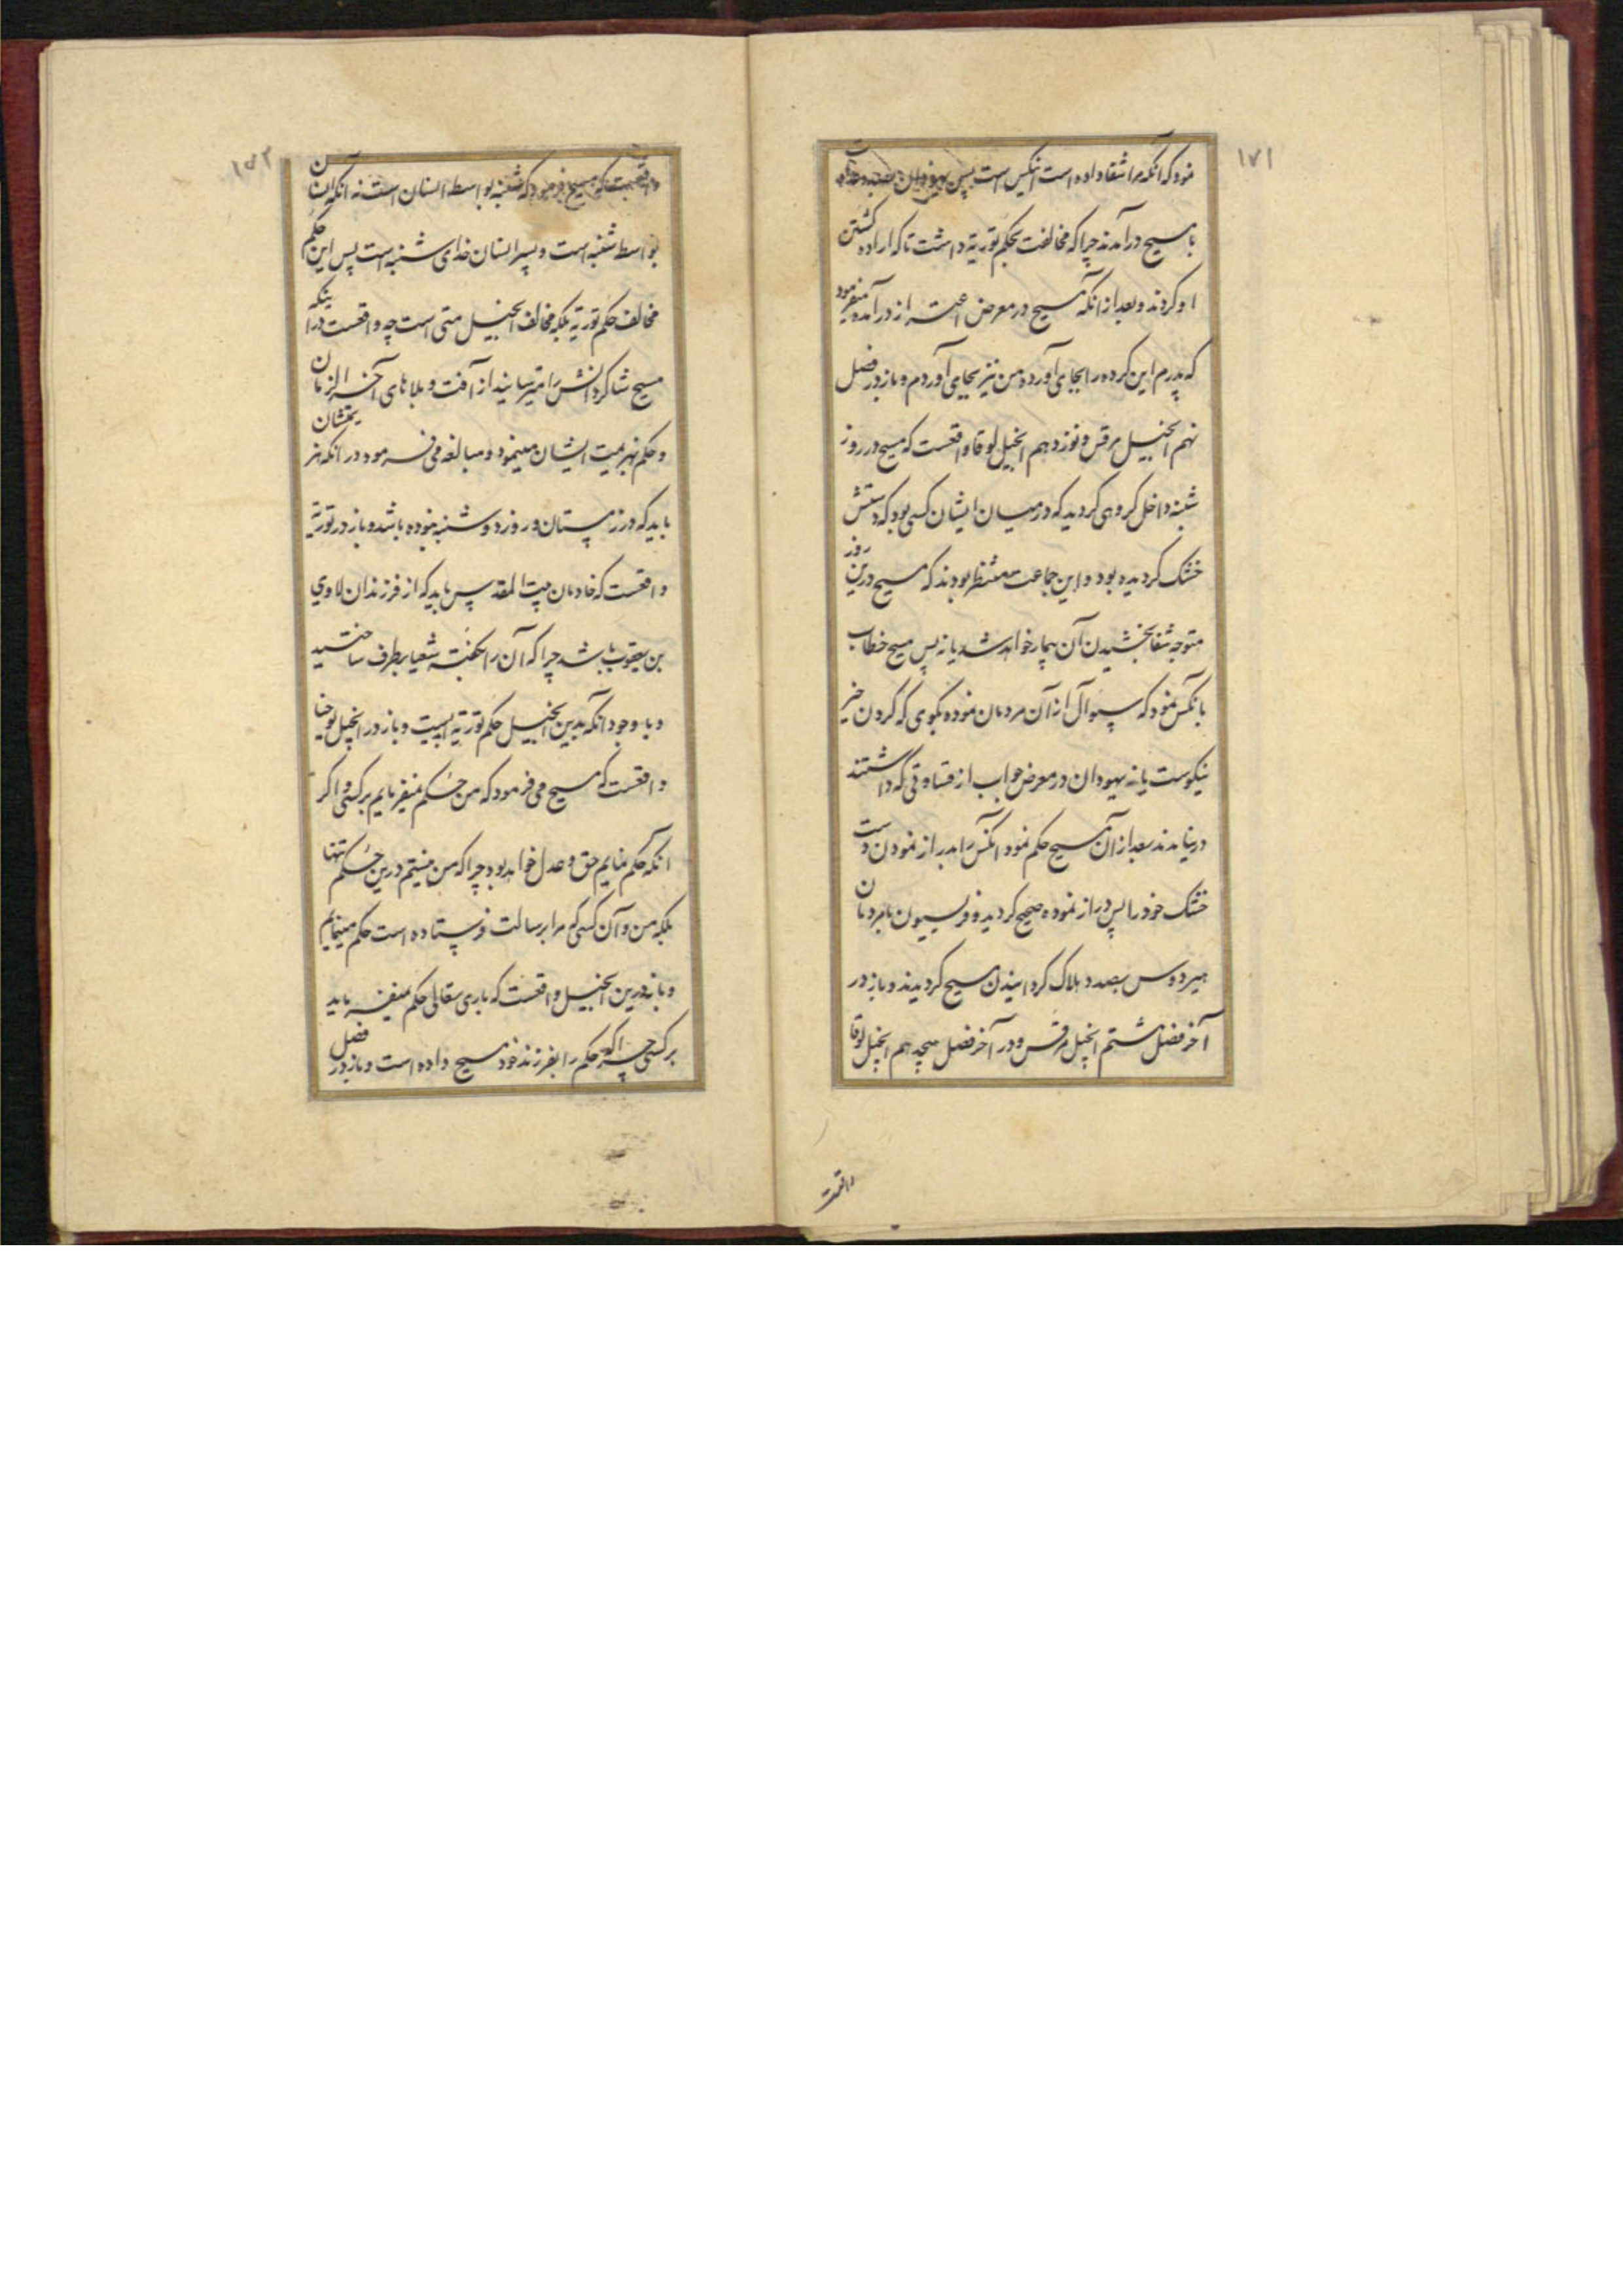 ۱۷۱
نمود که آنکه مرا شفا داده است آنکس است پس یهودان بصدد عداوت
با مسیح درآمدند چرا که مخالفت بحکم توریة داشت تا که اراده کشتن
او کردند و بعد از آنکه مسیح در معرض اعتراز درآمده میفرمود
که پدرم این کرده را بجای آورده من نیز بجای آوردم و باز در فصل
نهم انجیل مرقس و نوزدهم انجیل لوقا واقعست که مسیح در روز
شنبه داخل کروهی کردید که در میان ایشان کسی بود که دستش
خشک کردیده بود و این جماعت منتظر بودند که مسیح درین روز
متوجه شفا بخشیدن آن بیمار خواهد شد یا نه پس مسیح خطاب
بآنکس نمود که سوال از آن مردمان نموده بکوی که کردن خیر
نیکوست یا نه یهودان در معرض جواب از قساوتی که داشتند
درنیامدند بعد از آن مسیح حکم نمود آنکس را بدراز نمودن دست
خشک خود را پس دراز نموده صحیح کردید و فریسیون بامردمان
هیردوس بصدد هلاک کردانیدن مسیح کردیدند و باز در
آخر فصل هشتم انجیل مرقس و در آخر فصل هیجدهم انجیل لوقا
واقعست
۱۵۲
واقعست که مسیح فرمود که شنبه بواسطه انسان است نه آنکه انسان
بواسطه شنبه است و پسر انسان خدای شنبه است پس این حکم
مخالف حکم توریة بلکه مخالف انجیل متی است چه واقعست در اینکه
مسیح شاکردانش را میترسانید از آفت و بلاهای آخر الزمان
و حکم بهزیمت ایشان مینمود و مبالغه می فرمود در آنکه هزیمتشان
باید که در زمستان و روز دوشنبه نبوده باشد و باز در توریة
واقعست که خادمان بیت المقدس باید که از فرزندان لاوی
بن یعقوب باشد چرا که آن را بکفته شعیا برطرف ساختید
و با وجود آنکه بدین انجیل حکم توریة است و باز در انجیل یوحنا
واقعست که مسیح می فرمود که من حکم نمیفرمایم بر کسی و اکر
آنکه حکم نمایم حق و عدل خواهد بود چرا که من نیستم درین حکم تنها
بلکه من و آن کسی که مرا برسالت فرستاده است حکم مینمایم
و باز درین انجیل واقعست که باری تعالی حکم نمیفرماید
بر کسی چرا که حکم را بفرزند خود مسیح داده است و باز در فصل